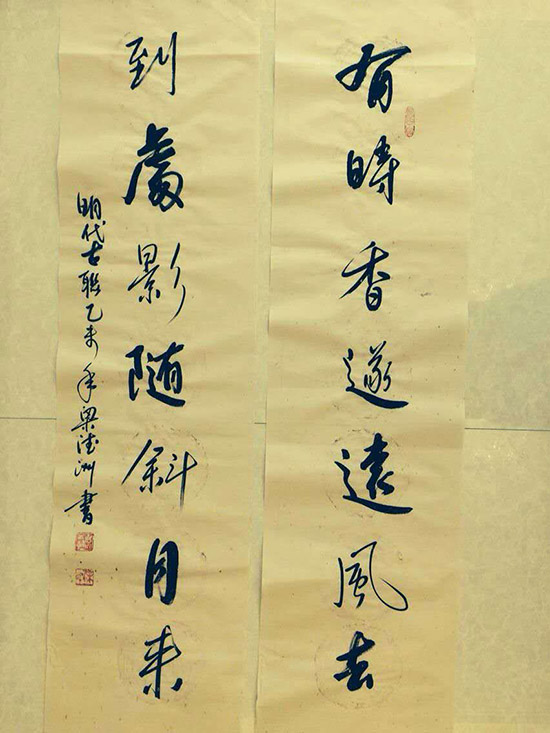 有時香遂遠風去
到處影随斜月来
明代古聯乙未年梁德洲書